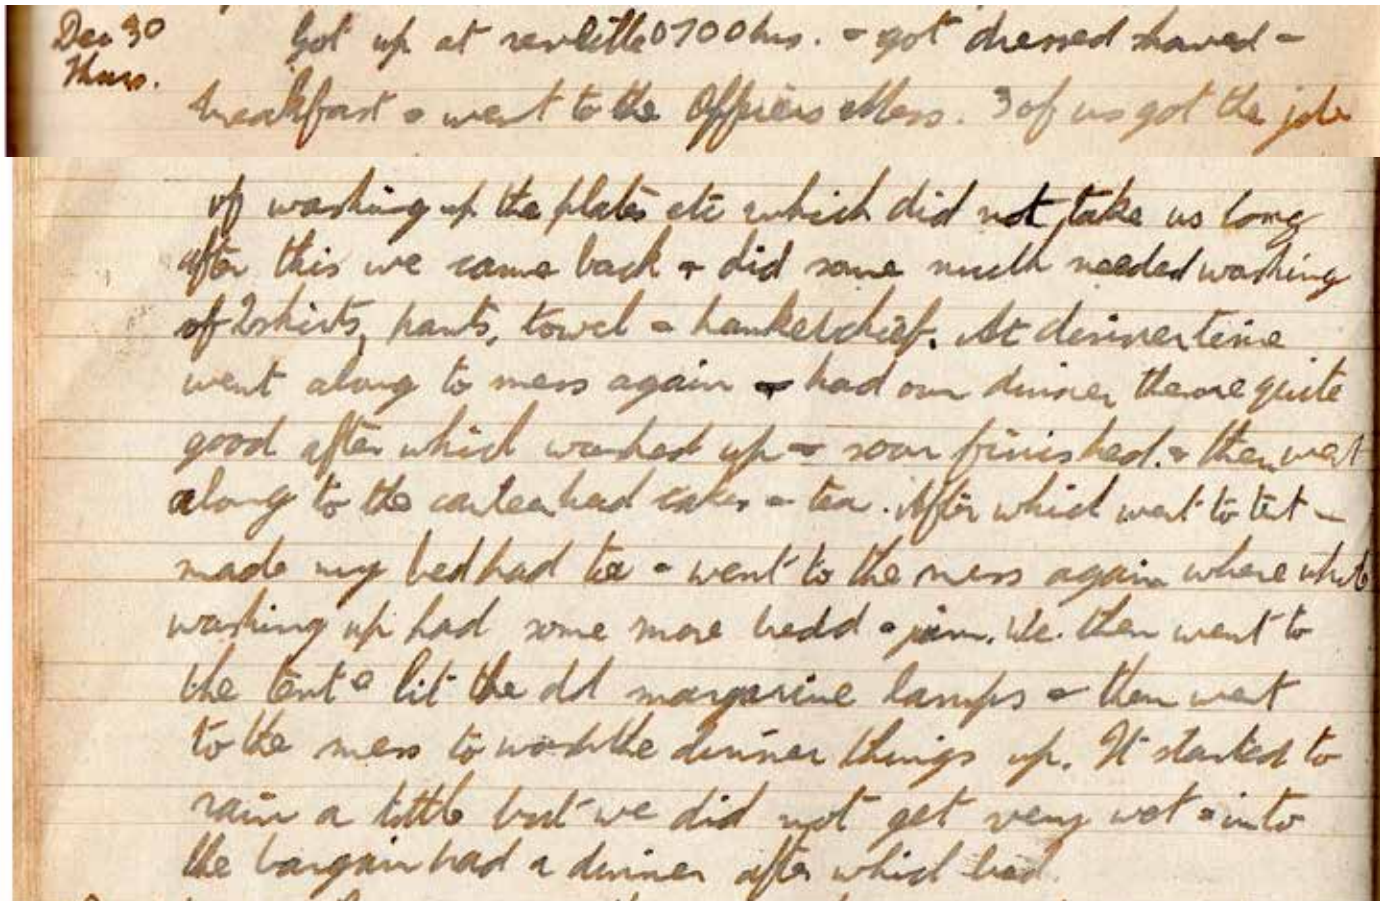 Dec 30 Got up at revellie 0700 hrs. & got dressed shaved &
Thurs.
breakfast & went to the Officers Mess. 3 of us got the job
of washing up the plates etc which did not take us long
after this we came back & did some much needed washing
of 2 shirts, pants, towel & hankerchief. At dinner time
went along to mess again & had our dinner there quite
good after which washed up & soon finished. & then went
along to the canteen had cakes & tea. After which went to tent &
made my bed had tea & went to the mess again where while
washing up had some more bread & jam. We then went to
the tent & lit the old margarine lamps & then went
to the mess to wash the dinner things up. It started to
rain a little but we did not get very wet & into
the bargain had a dinner after which bed.